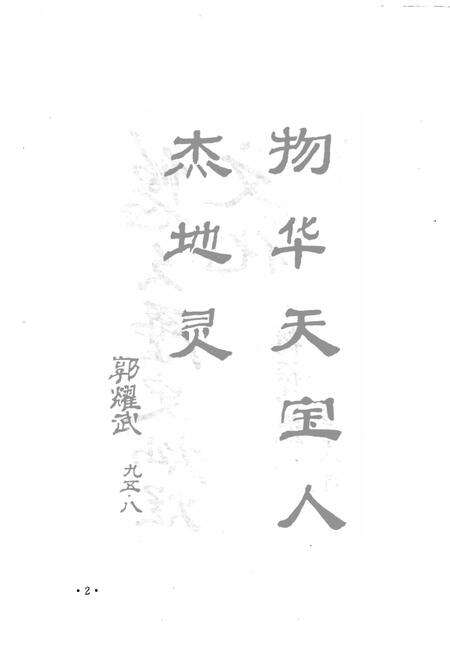 物华天宝人
杰地灵
郭耀武
九五·八
·2·